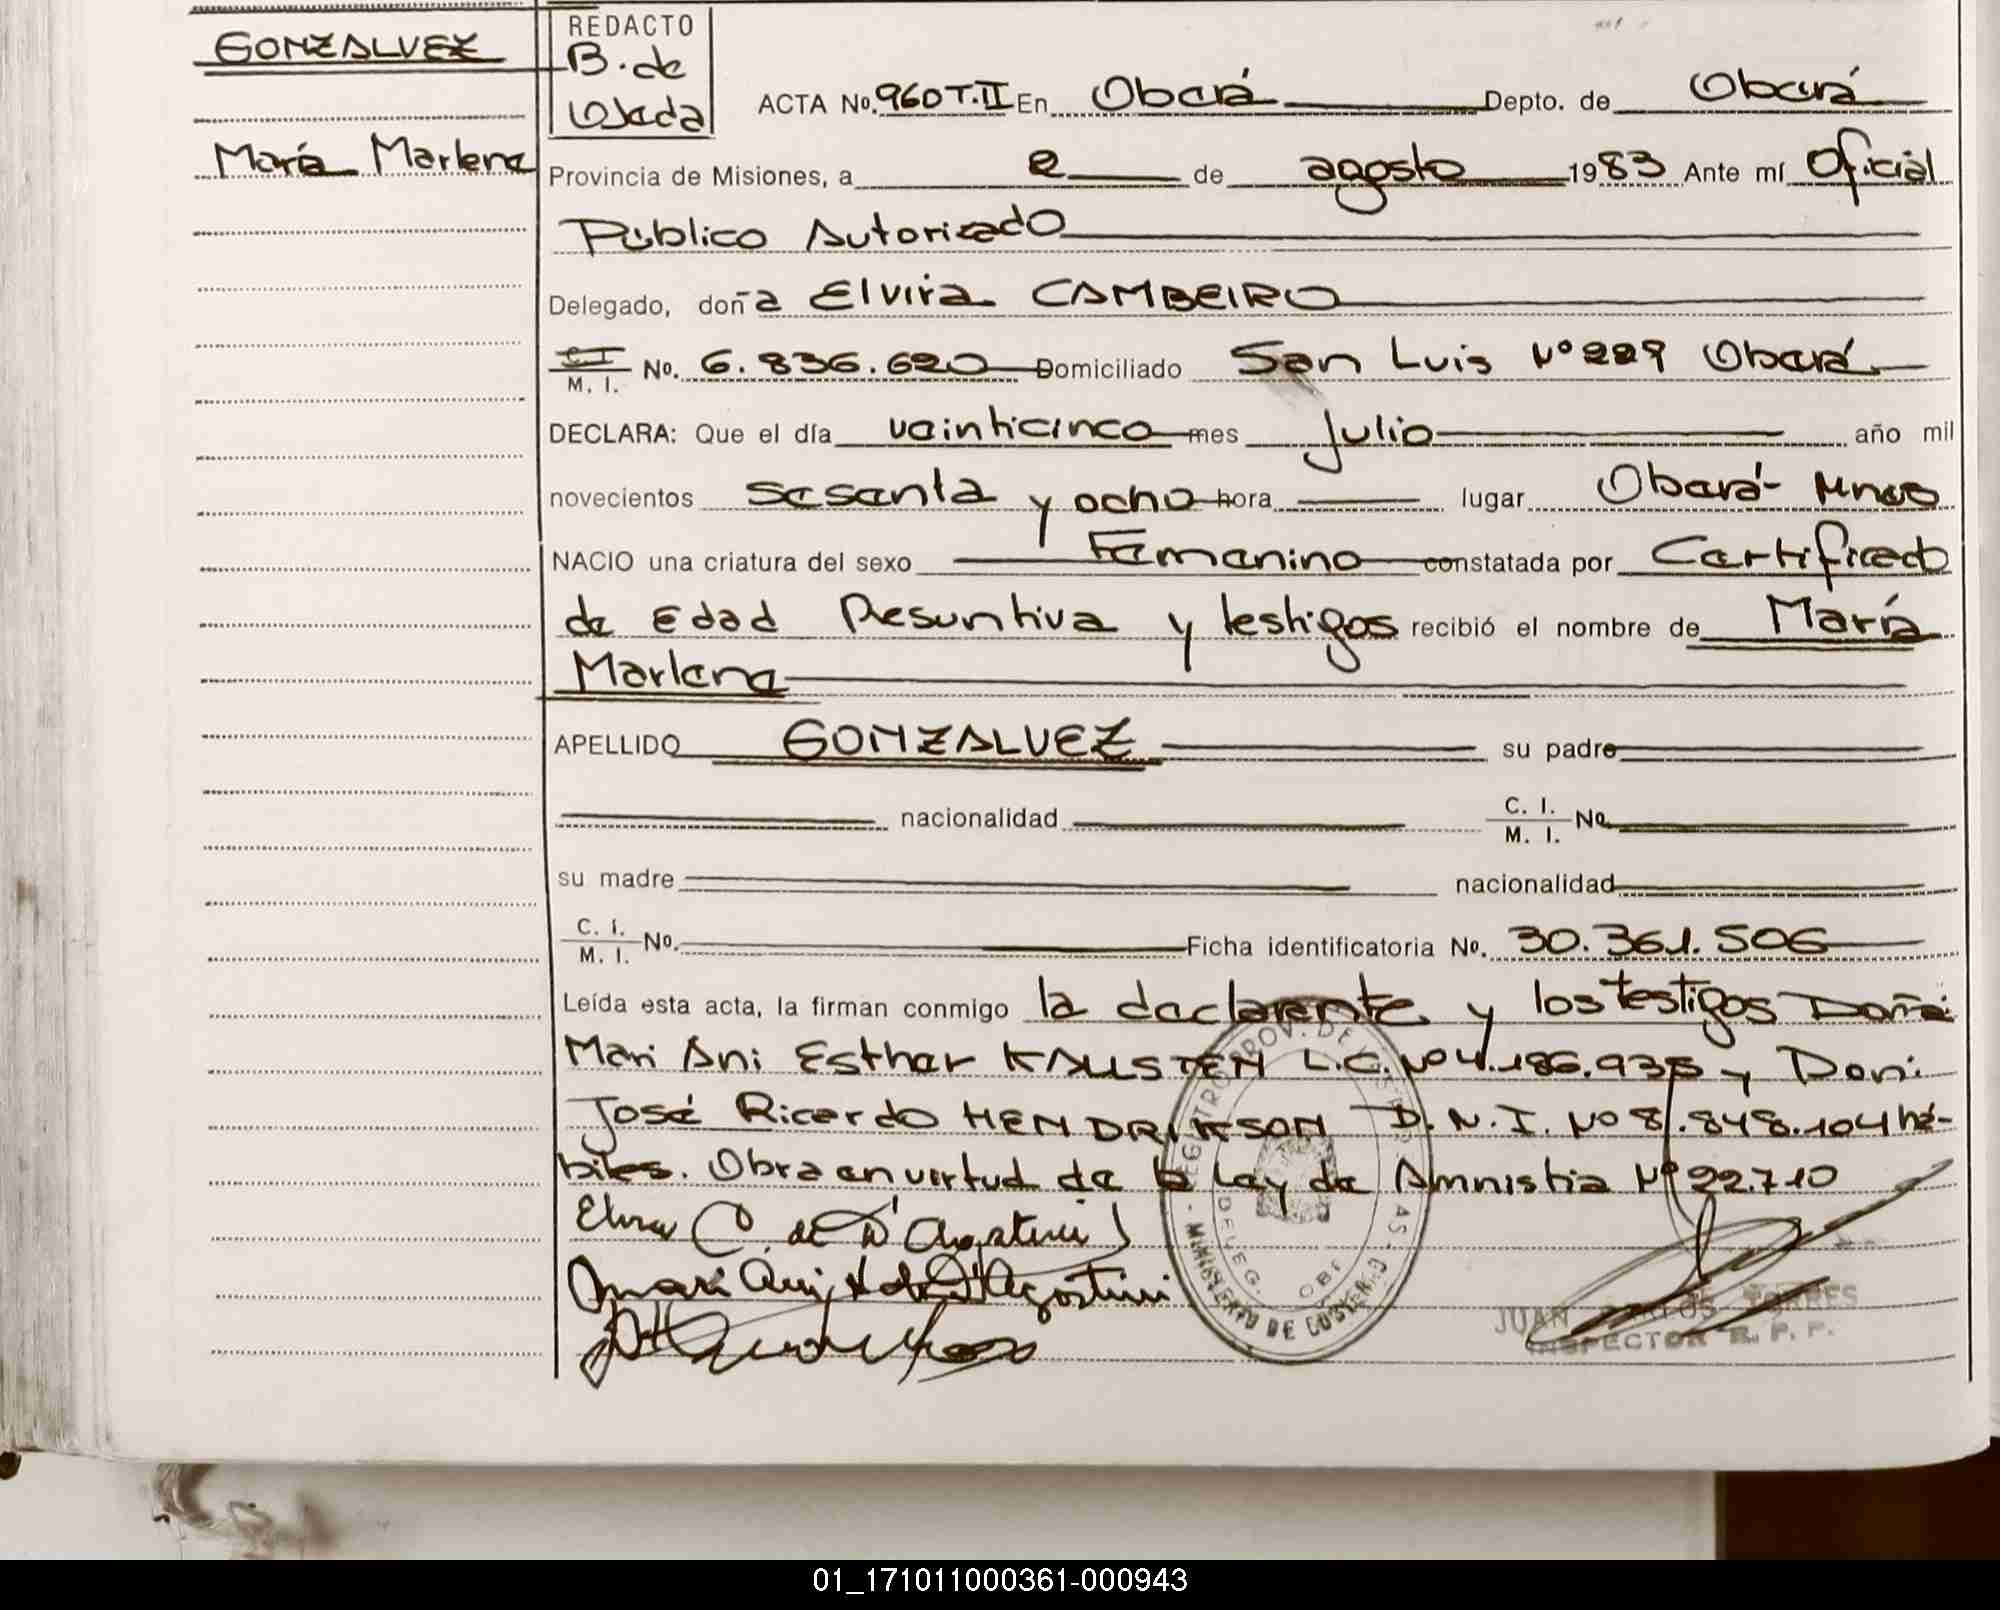 GONZALVEZ
María Marlene
REDACTO
B. de
Ojeda
ACTA No. 960 T.II En Oberá Depto. de Oberá
Provincia de Misiones, a 2 de agosto 1983 Ante mí Oficial
Público Autorizado
Delegado, doña Elvira CAMBEIRO
C I
M. I. No. 6.836.620 Domiciliado San Luis Nº 229 Oberá
DECLARA: Que el día veinticinco mes Julio año mil
novecientos sesenta y ocho hora lugar Oberá- Mnes
NACIO una criatura del sexo Femenino constatada por Certificado
de Edad Presuntiva y testigos recibió el nombre de María
Marlene
APELLIDO GONZALVEZ su padre
nacionalidad C. I.
M. I. No.
su madre nacionalidad
C. I.
M. I. No. Ficha identificatoria No. 30.361.506
Leída esta acta, la firman conmigo la declarante y los testigos Doña
Mari Ani Esther KALLSTEN L.C. Nº 4.186.935 y Don
José Ricardo HENDRIKSON D.N.I. Nº 8.848.104 há-
biles. Obra en virtud de la Ley de Amnistia Nº 22.710
Elvira C. de D'Agostini
Mari Ani K de D'Agostini
JUAN CARLOS TORRES
INSPECTOR R. P. P.
01_171011000361-000943